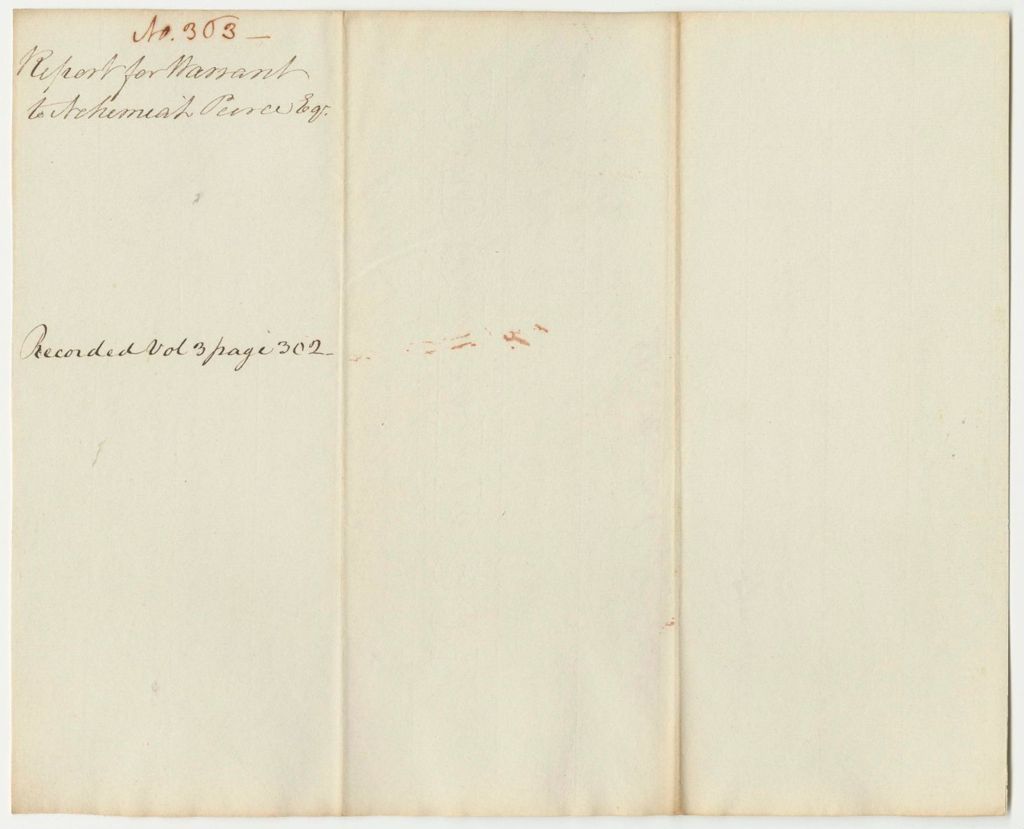 No. 303 —
Report for Warrant
to Nehemiah Peirce Esqr.
Recorded Vol 3 page 302